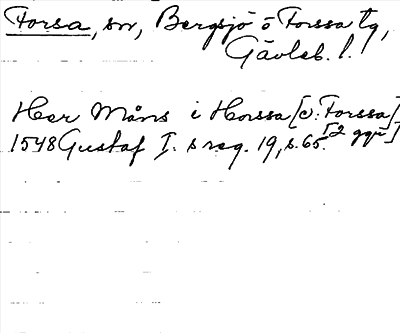 Forsa, sn, Bergsjö o Forssa tg,
Gävleb. l.
Herr Måns i Horssa [ɔ: Forssa]
1548 Gustaf I. s reg. 19, s. 65. [2 ggr]